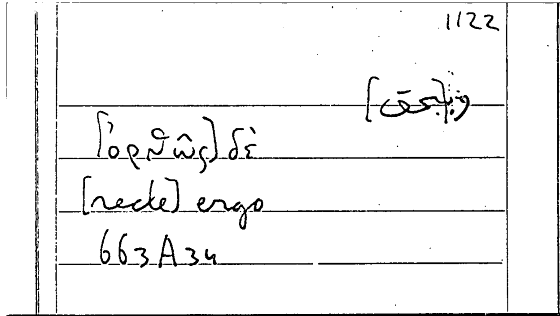 1122
ف[بحق]
[ὀρθῶς] δὲ
[recte] ergo
663A34